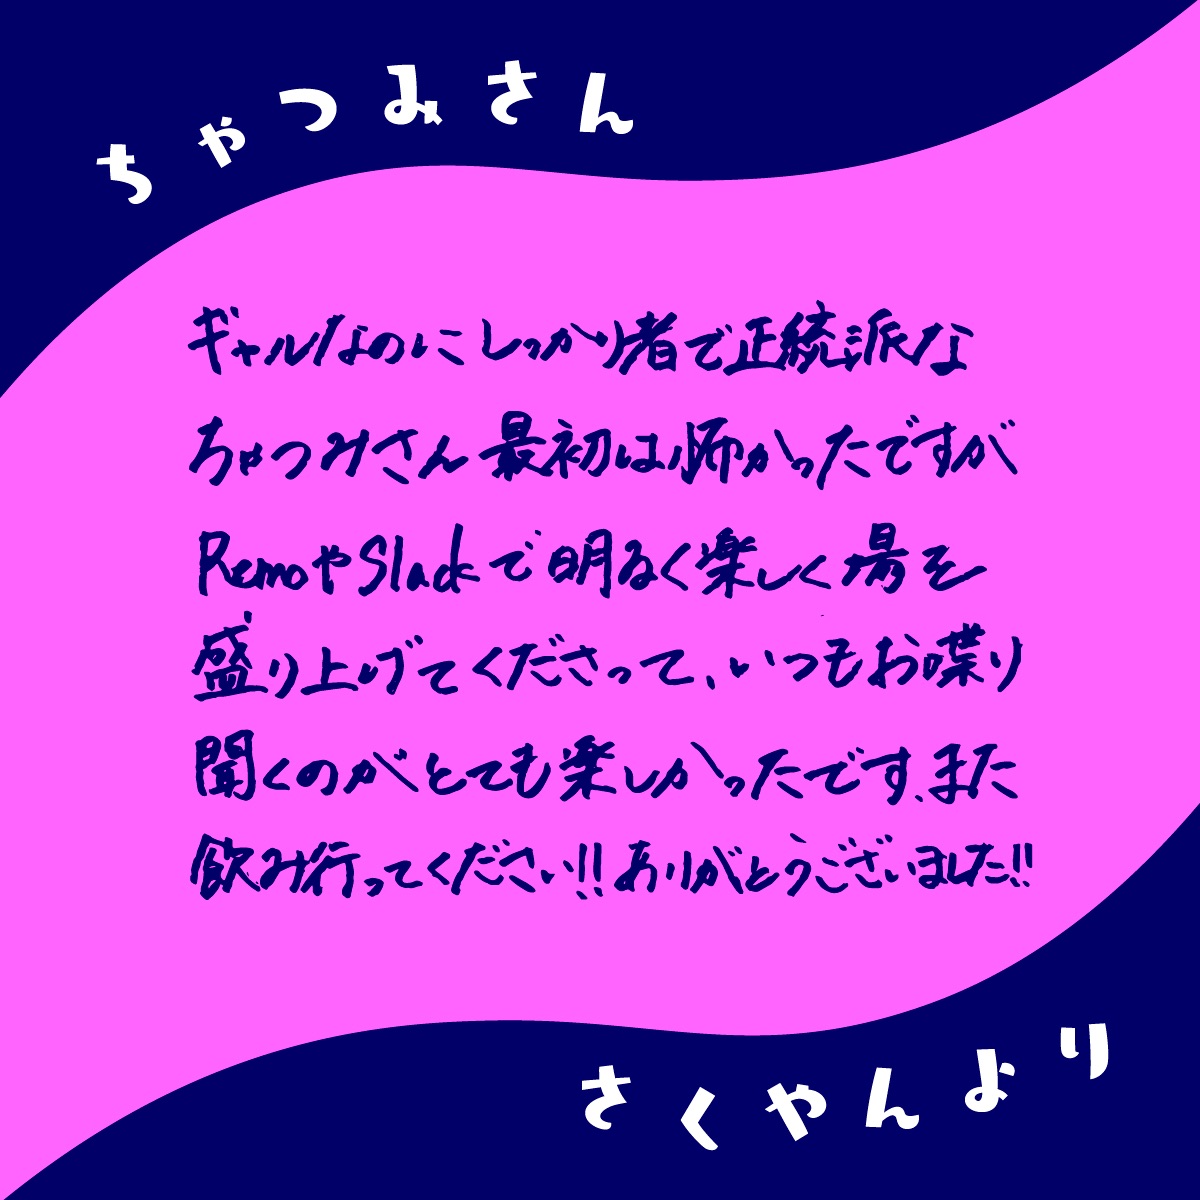 ちゃつみさん
ギャルなのにしっかり者で正統派な
ちゃつみさん最初は怖かったですが
RemoやSlackで明るく楽しく場を
盛り上げてくださって、いつもお喋り
聞くのがとても楽しかったです、また
飲み行ってください!!ありがとうございました!!
さくやんより